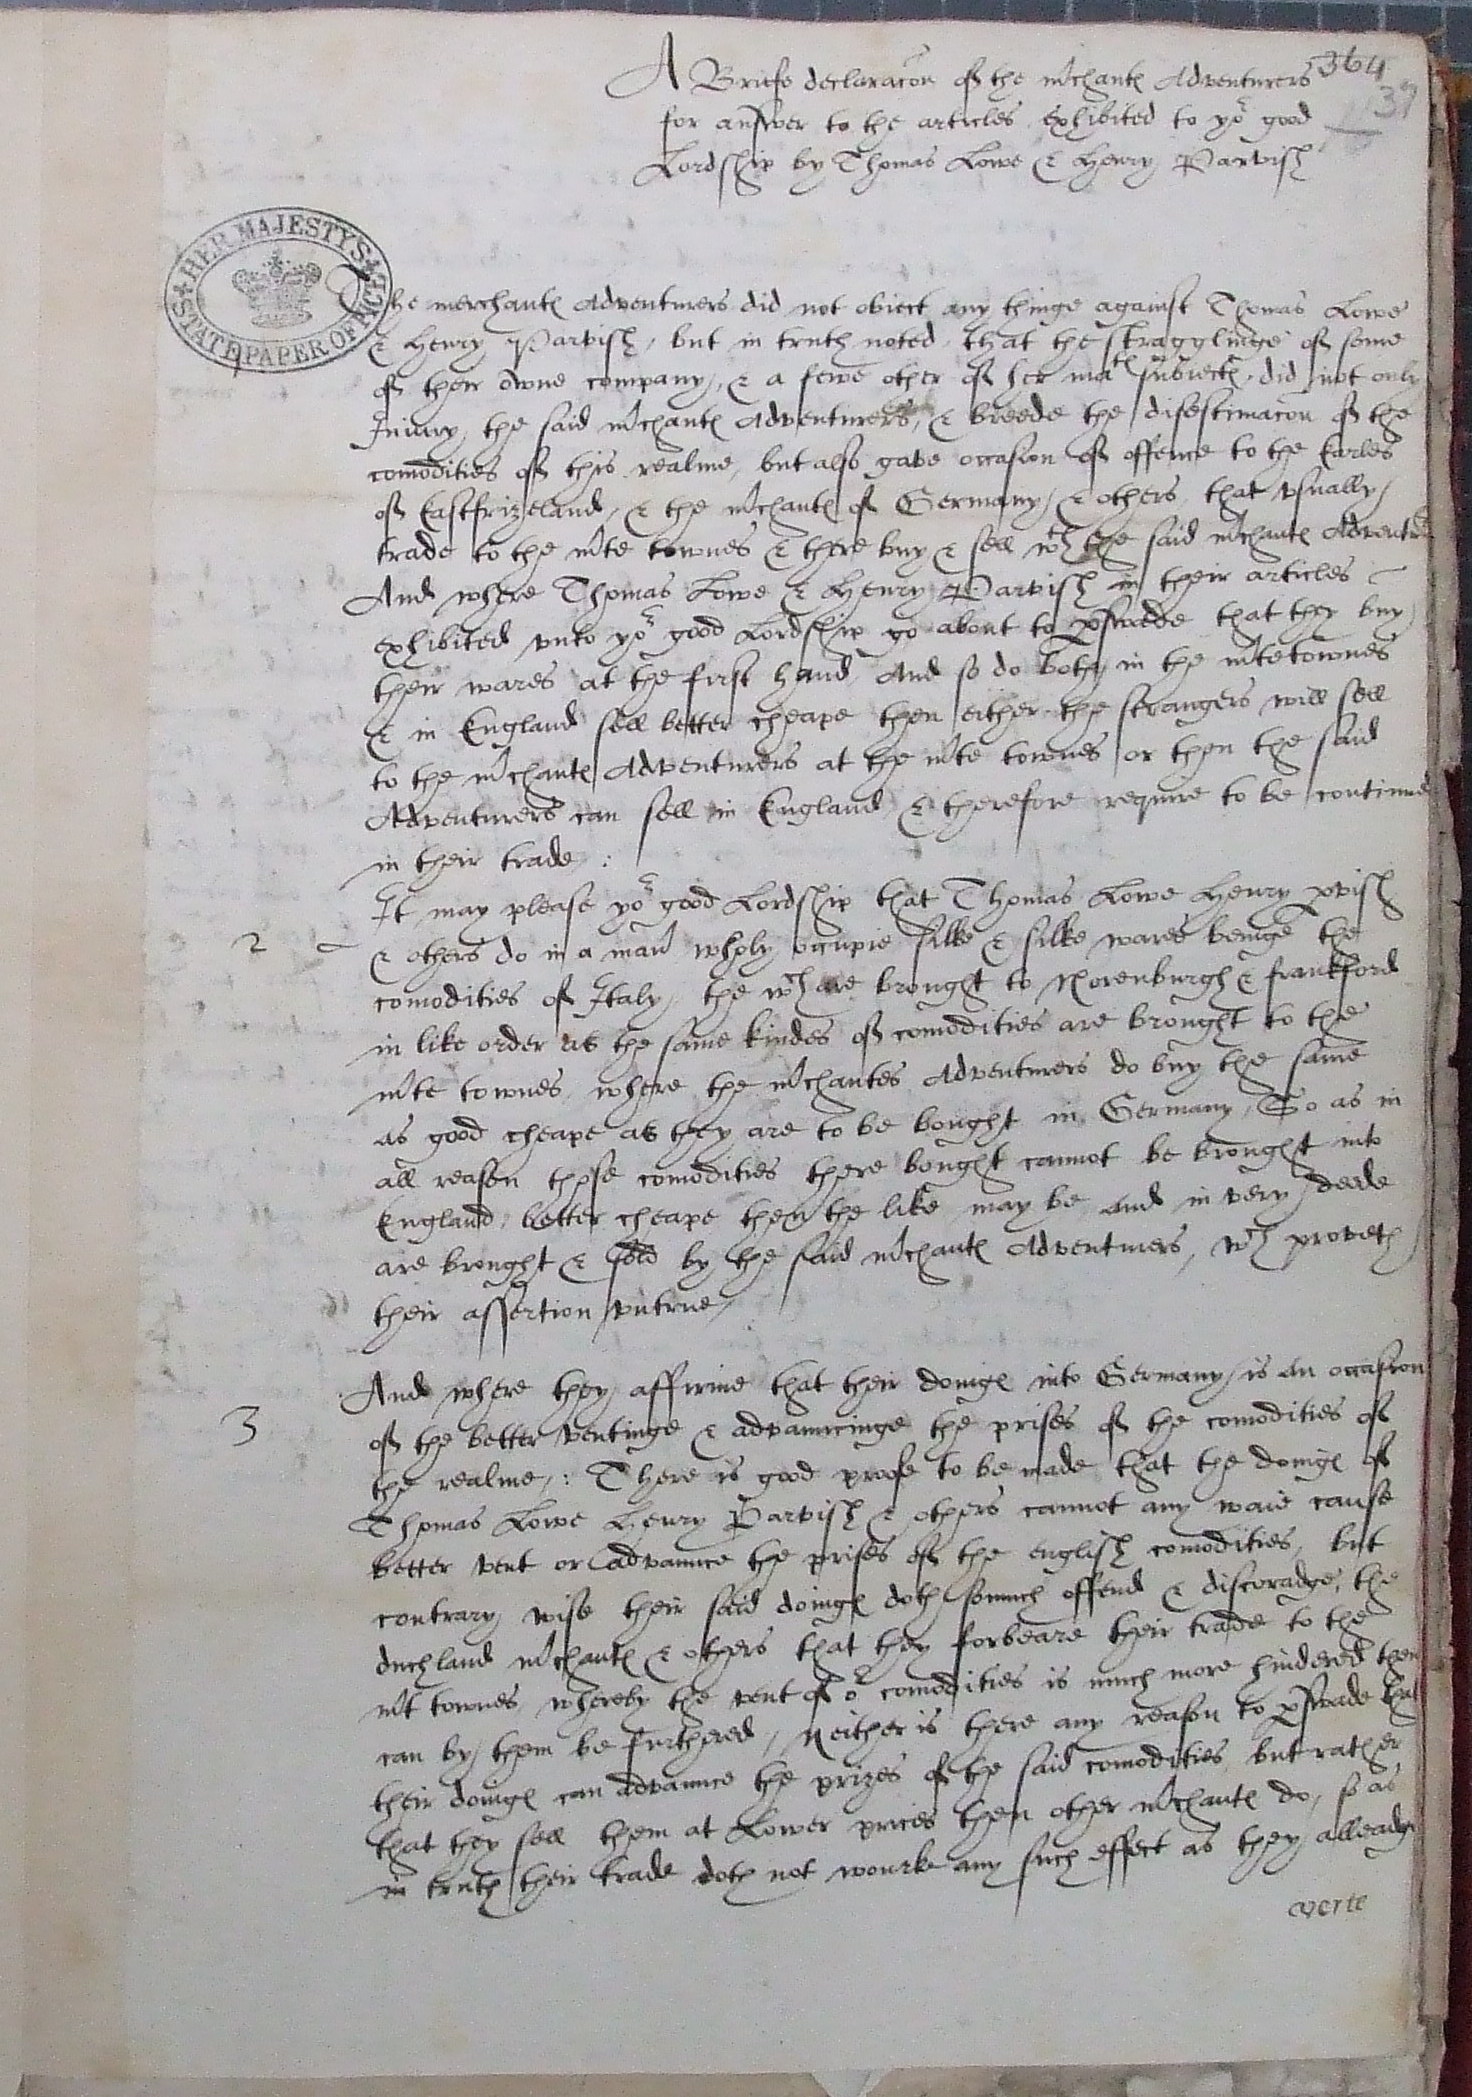 364
37
A Briefe declaracon of the mchantes Adventurers
for answer to the articles exhibited to yor good
Lordship by Thomas Lowe & Henry Parvish
HER MAJESTY'S STATE PAPER OFFICE
The merchantes Adventurers did not obiect any thinge against Thomas Lowe
& Henry Parvish, but in truth noted that the stragglinge of some
of their owne company, & a fewe other of her mates subiectes did not only
Iniury the said mchantes Adventurers, & breede the disestimacon of the
comodities of this realme, but also gave occasion of offence to the Earles
of Eastfrizeland, & the mchantes of Germany, & others that vsually
trade to the mte townes & there buy & sell wth the said mchantes Adventurers
And where Thomas Lowe & Henry Parvish in their articles
exhibited vnto yor good Lordship go about to pswade that they buy
their wares at the first hand, And so do both in the mte townes
& in England sell better cheape then either the strangers will sell
to the mchantes Adventurers at the mte townes or then the said
Adventurers can sell in England & therefore require to be continued
in their trade :
It may please yor good Lordship that Thomas Lowe Henry pvish
2 & others do in a manr wholy occupie silke & silke wares beinge the
comodities of Italy, the wch are brought to Norenburgh & frankford
in like order as the same kindes of comodities are brought to the
mte townes, where the mchantes Adventurers do buy the same
as good cheape as they are to be bought in Germany, So as in
all reason those comodities there bought cannot be brought into
England, better cheape then the like may be, and in very deede
are brought & sold by the said mchantes Adventurers, wch proveth
their assertion vntrue,
And where they affirme that their doinges into Germany is an occasion
3 of the better ventinge & advauncinge the prises of the comodities of
the realme, : There is good proofe to be made that the doinges of
Thomas Lowe Henry Parvish & others cannot any waie cause
better vent or advaunce the prises of the english comodities, but
contrary wise their said doinges doth somuch offend & discoradge, the
duchland mchantes & others that they forbeare their trade to the
mt townes, whereby the vent of or comodities is much more hindered then
can by them be furthered, Neither is there any reason to pswade that
their doinges can advaunce the prizes of the said comodities, but rather
that they sell them at Lower prices then other mchantes do, so as
in truth their trade doth not wourke any such effect as they alleadge
verte